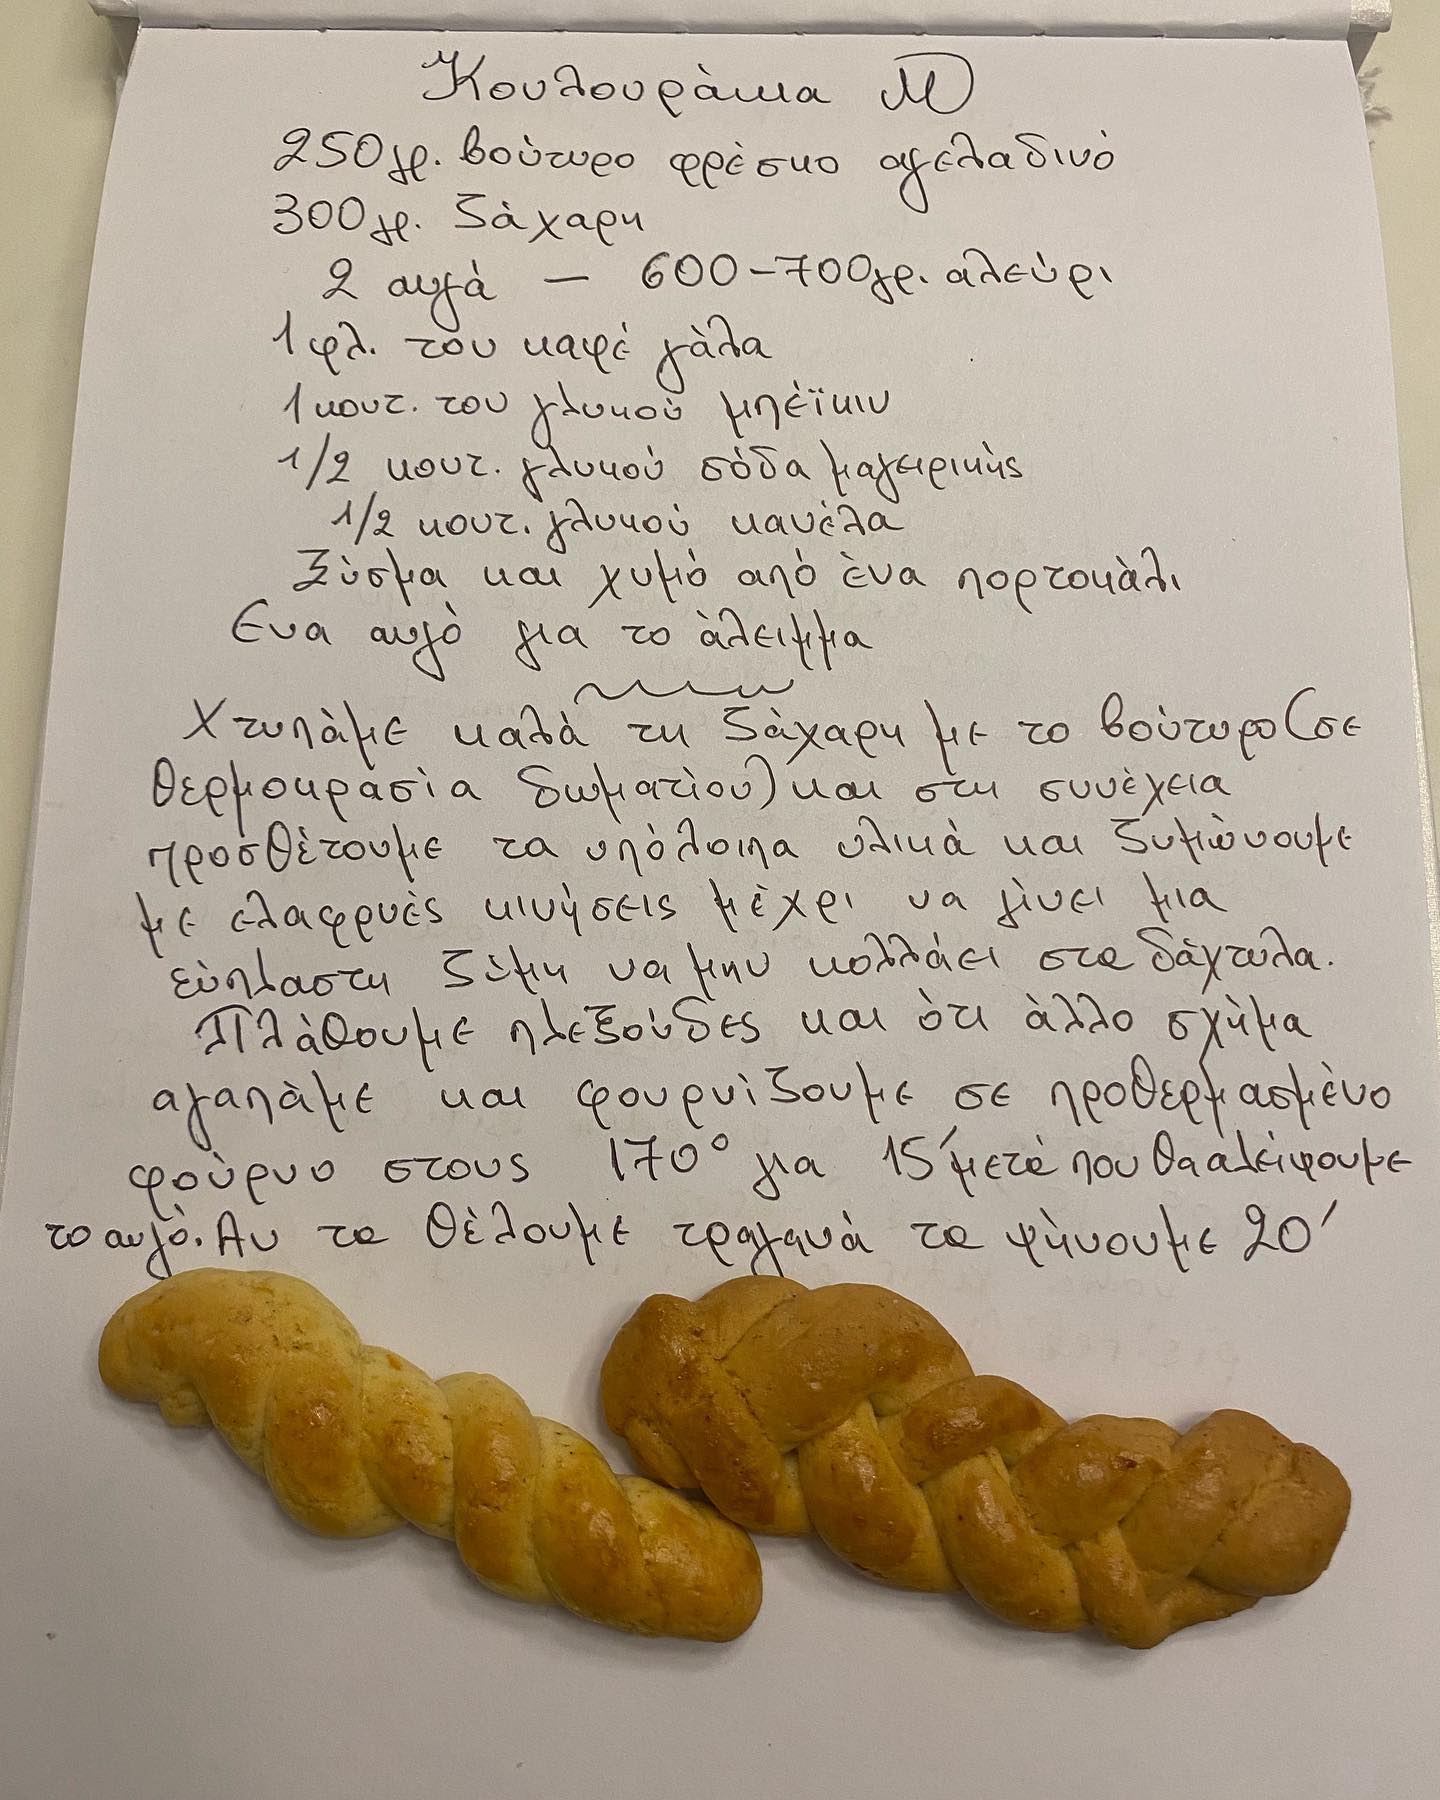 Κουλουράκια Μ
250γρ. βούτυρο φρέσκο αγελαδινό
300γρ. ζάχαρη
2 αυγά – 600-700γρ. αλεύρι
1 φλ. του καφέ γάλα
1 κουτ. του γλυκού μπέϊκιν
1/2 κουτ. γλυκού σόδα μαγειρικής
1/2 κουτ. γλυκού κανέλα
Ξύσμα και χυμό από ένα πορτοκάλι
Ενα αυγό για το άλειμμα
Χτυπάμε καλά τη ζάχαρη με το βούτυρο (σε
θερμοκρασία δωματίου) και στη συνέχεια
προσθέτουμε τα υπόλοιπα υλικά και ζυμώνουμε
με ελαφρυές κινήσεις μέχρι να γίνει μια
εύπλαστη ζύμη να μην κολλάει στα δάχτυλα.
Πλάθουμε πλεξούδες και ότι άλλο σχήμα
αγαπάμε και φουρνίζουμε σε προθερμασμένο
φούρνο στους 170° για 15΄ μετά που θα αλείφουμε
το αυγό. Αν τα θέλουμε τραγανά τα ψήνουμε 20΄